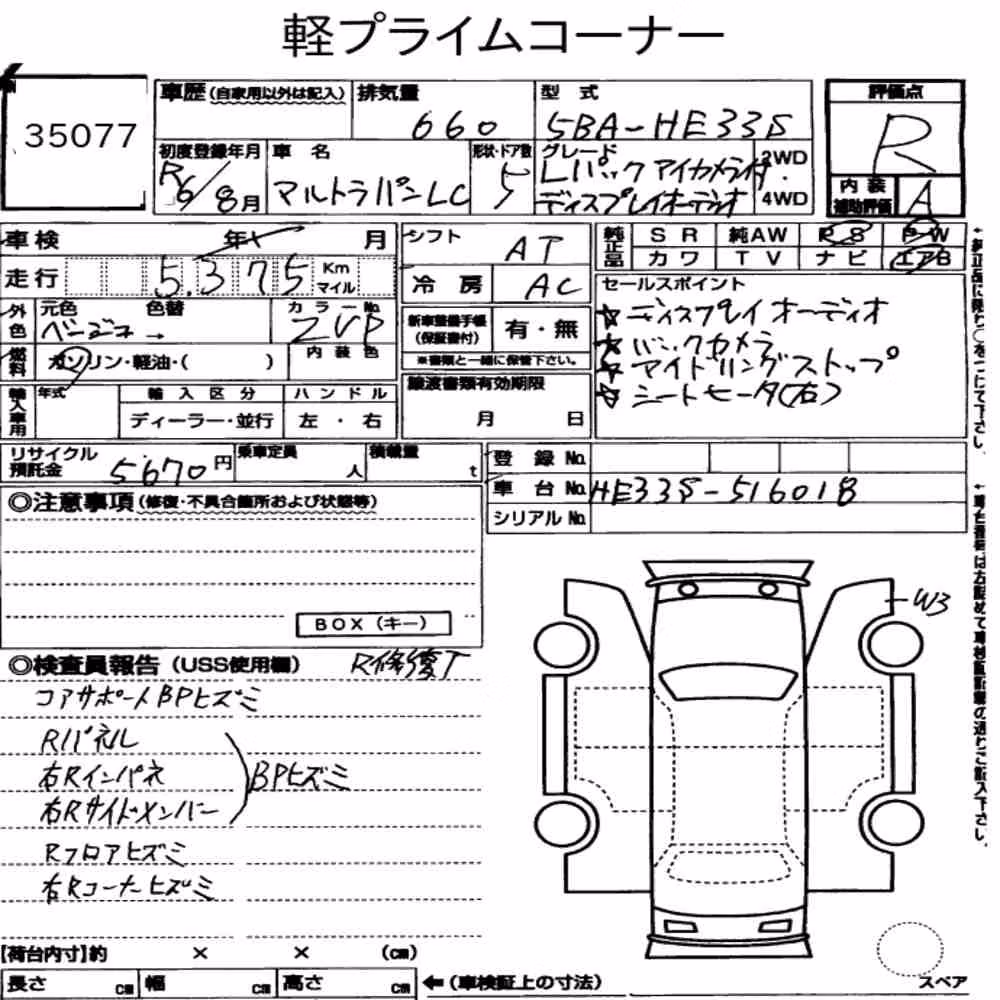 軽プライムコーナー
35077
車歴(自家用以外は記入)
排気量
660
型式
5BA-HE33S
評価点
R
内装
補助評価
A
初度登録年月
R6/8月
車名
アルトラパンLC
形状・ドア数
5
グレード
Lパックアイカメラ付・
ディスプレイオーディオ
2WD
4WD
車検
年
月
シフト
AT
純正品
SR
純AW
PS
PW
カワ
TV
ナビ
エアB
走行
5,375
Km
マイル
冷房
AC
セールスポイント
☆ディスプレイオーディオ
☆バックカメラ
☆アイドリングストップ
☆シートヒータ(右)
外色
元色
ベージュ
色替
→
カラーNo.
ZVP
新車整備手帳
(保証書付)
有・無
※書類と一緒に保管下さい。
燃料
ガソリン・軽油・( )
内装色
譲渡書類有効期限
月 日
輸入車用
年式
輸入区分
ディーラー・並行
ハンドル
左・右
リサイクル
預託金
5670円
乗車定員
人
積載量
t
登録No.
車台No.
HE33S-516018
シリアルNo.
◎注意事項(修復・不具合箇所および状態等)
BOX(キー)
◎検査員報告(USS使用欄)
R修復T
コアサポートBPヒズミ
Rパネル
右Rインパネ
BPヒズミ
右Rサイドメンバー
Rフロアヒズミ
右Rコーナーヒズミ
W3
【荷台内寸】約 × × (cm)
長さ cm
幅 cm
高さ cm
←(車検証上の寸法)
スペア